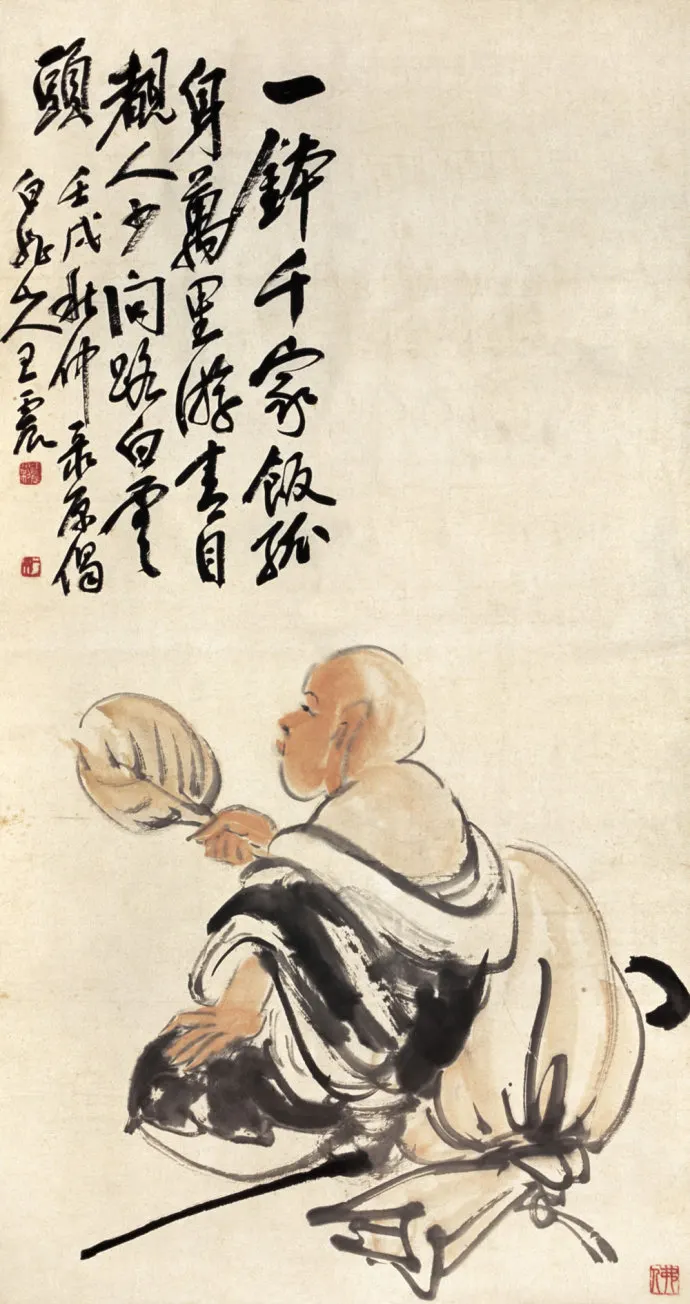 一鉢千家飯孤
身萬里游青目
覩人少問路白雲
頭
壬戌秋仲录原偈
白龍山人王震